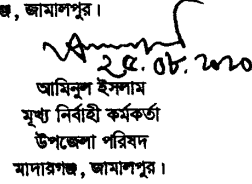 ঞ্জ, জামালপুর।
২৫.০৮.২০২০
আমিনুল ইসলাম
মূখ্য নির্বাহী কর্মকর্তা
উপজেলা পরিষদ
মাদারগঞ্জ, জামালপুর।